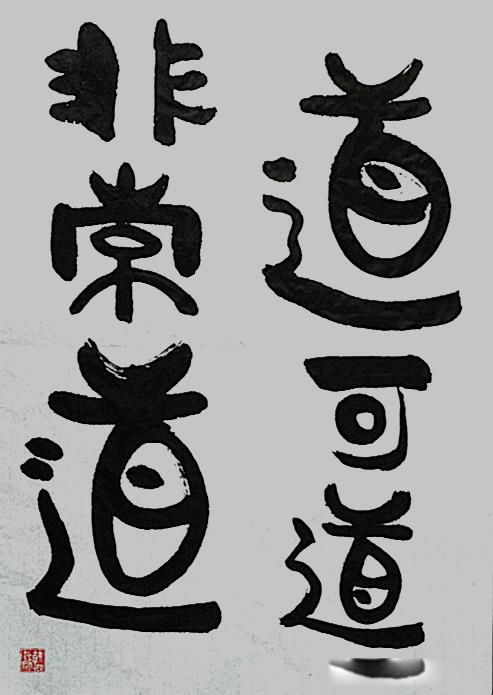 道可道
非常道